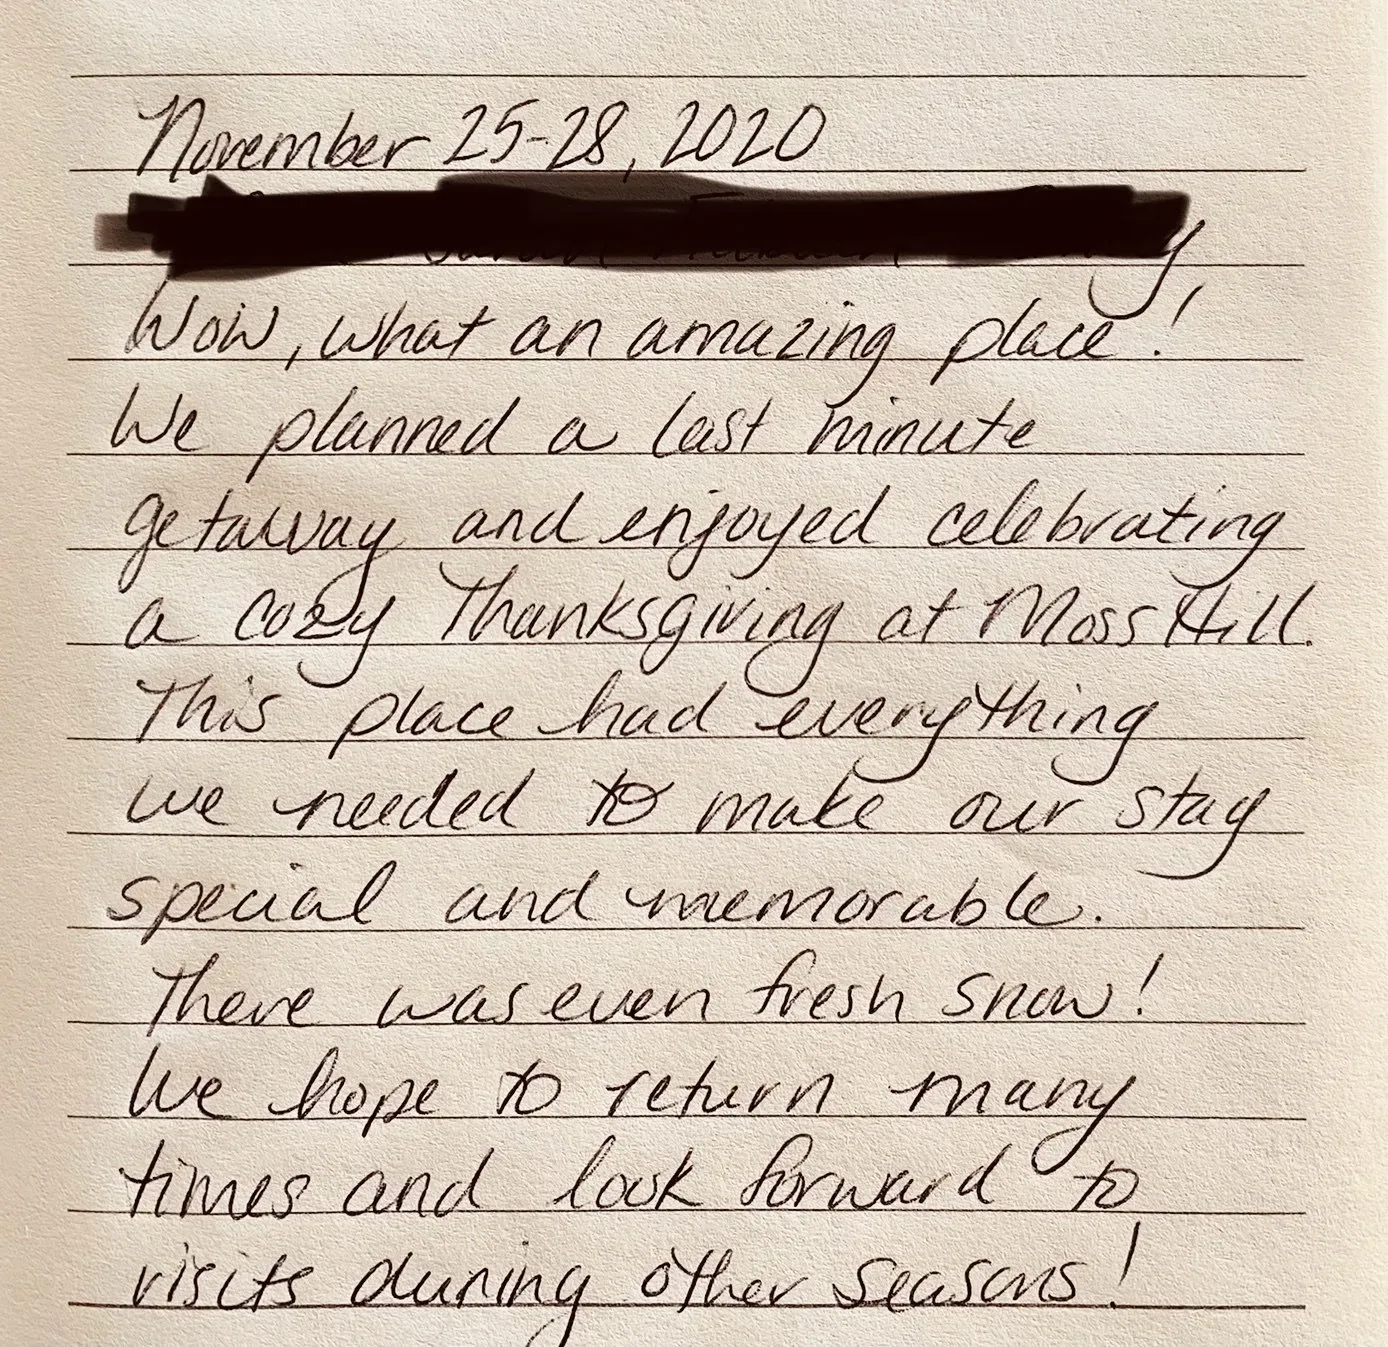 November 25-28, 2020
Wow, what an amazing place!
We planned a last minute
getaway and enjoyed celebrating
a cozy Thanksgiving at Moss Hill.
This place had everything
we needed to make our stay
special and memorable.
There was even fresh snow!
We hope to return many
times and look forward to
visits during other seasons!